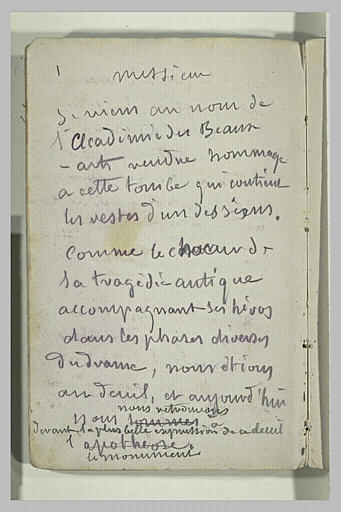 1
Messieur
Je viens au nom de
l'Académie des Beaux
-arts rendre hommage
a cette tombe qui contient
les restes d'un des siens.
Comme le choeur de
la tragédie antique
accompagnant ses héros
dans les phases diverses
du drame, nous étions
au deuil, et aujourd'hui
nous retrouvons
nous sommes
devant la plus belle expression de ce deuil
l'apothéose.
le monument